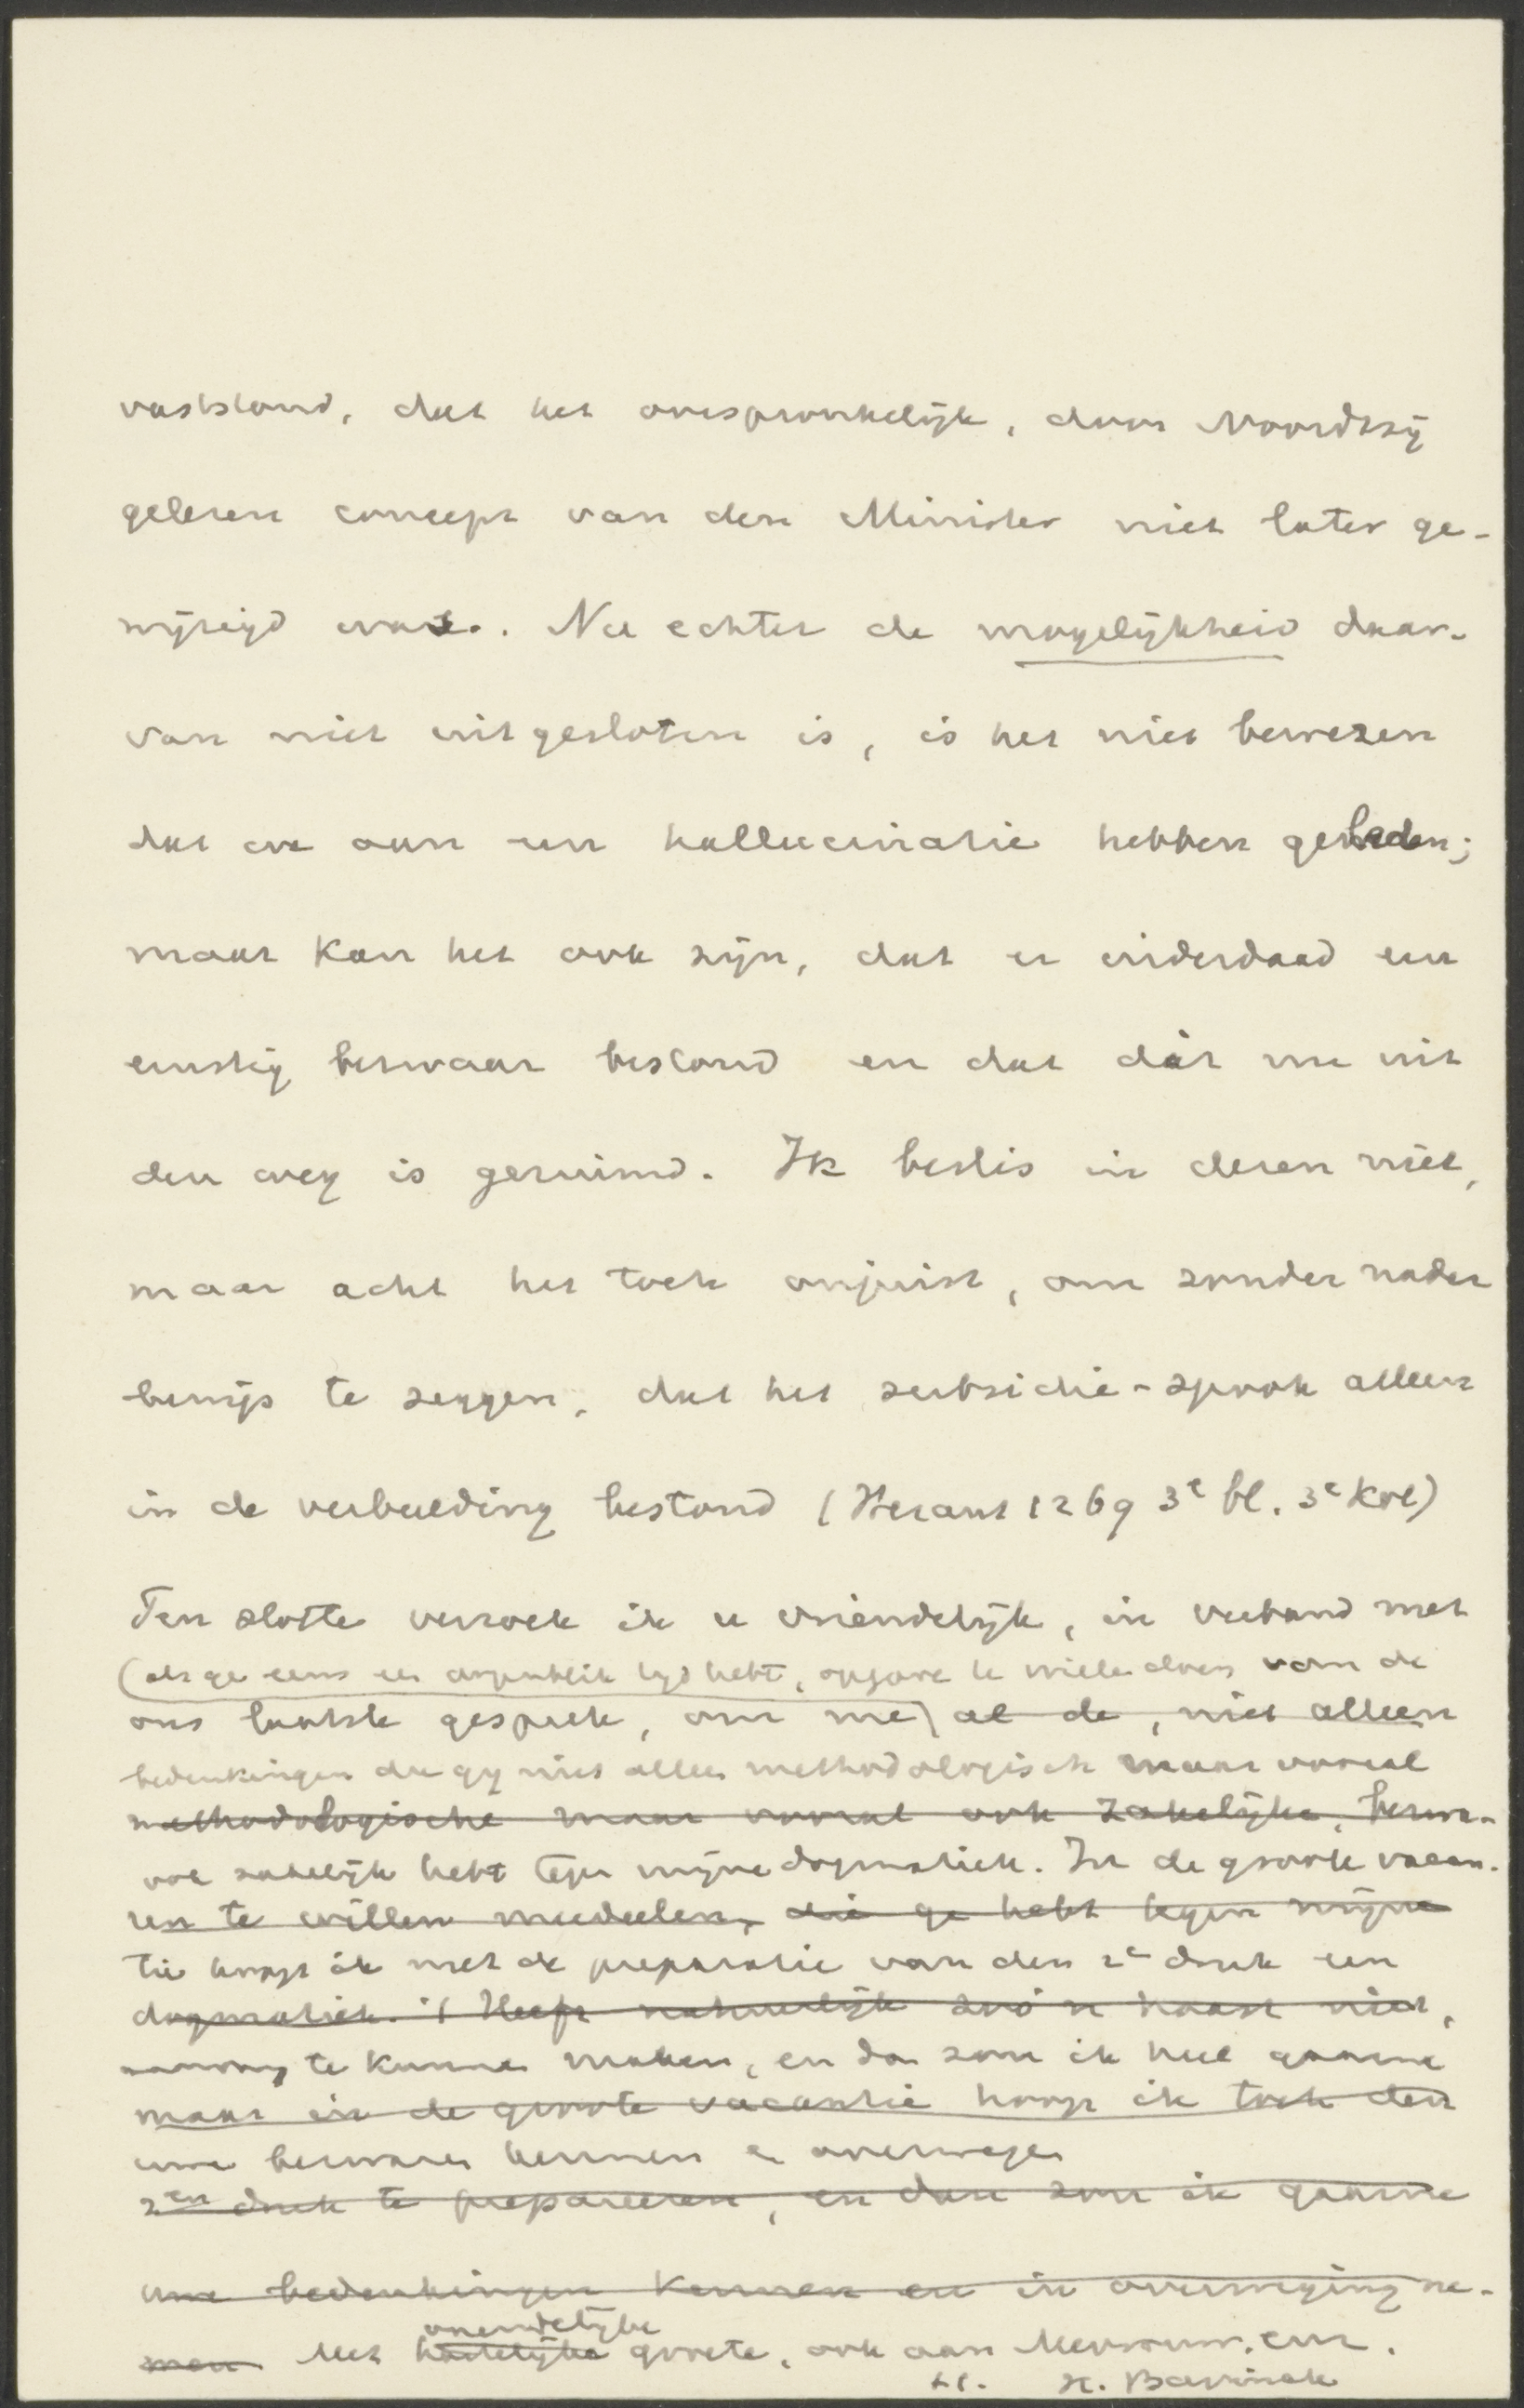 vaststond, dat het oorspronkelijk, door Noordtzij
gelezen concept van den Minister niet later ge-
wijzigd was. Nu echter de mogelijkheid daar-
van niet uitgesloten is, is het niet bewezen
dat we aan een hallucinatie hebben geleden;
maar kan het ook zijn, dat er inderdaad een
ernstig bezwaar bestond en dat dàt nu uit
den weg is geruimd. Ik beslis in dezen niet,
maar acht het toch onjuist, om zonder nader
bewijs te zeggen, dat het subsidie-spook alleen
in de verbeelding bestond (Heraut 1269 3e bl. 3e kol)
Ten slotte verzoek ik u vriendelijk, in verband met
(als ge eens een tijd hebt, opgave te willen doen van de
ons laatste gesprek, om me) al de, niet alleen
bedenkingen die gij niet alleen methodologisch maar vooral
methodologische maar vooral ook zakelijke, bezwa-
ook zakelijk hebt tegen mijne dogmatiek. In de groote vacan-
ren te willen meedeelen, die ge hebt tegen mijne
tie hoop ik met de preparatie van den 2e druk een
dogmatiek. 't Heeft natuurlijk zoo'n haast niet,
aanvang te kunnen maken, en dan zou ik heel gaarne
maar in de groote vacantie hoop ik toch den
uwe bezwaren kennen en overwegen
2en druk te prepareeren, en dan zou ik gaarne
uwe bedenkingen kennen en in overweging ne-
vriendelijke
men Met hartelijke groete, ook aan Mevrouw, enz.
H. Bavinck